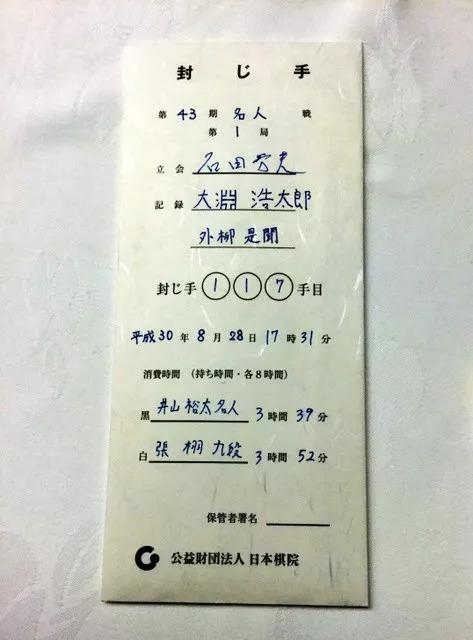 封じ手
第 43 期 名人 戦
第 1 局
立会 石田芳夫
記録 大淵 浩太郎
外柳 是聞
封じ手 1 1 7 手目
平成30年 8月 28日 17時 31分
消費時間 (持ち時間・各8時間)
黒 井山裕太名人 3時間 39分
白 張 栩 九段 3時間 52分
保管者署名
公益財団法人 日本棋院